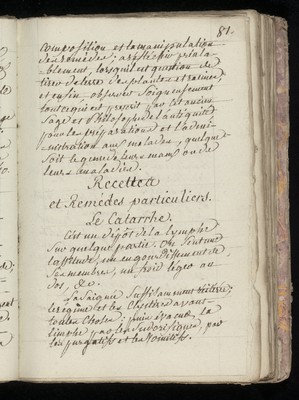 81.
composition et la manipulation
des remèdes; arrêter préala-
blement, lorsqu'il est question de
tirer des plantes et racines,
et enfin observer soigneusement
tout ce qui est prescrit par les anciens
sages et Philosophes de l'antiquité
pour les préparations et l'admi-
nistration aux malades, quelque
soit le genre de leurs maux ou de
leurs maladies.
Recettes
et Remèdes particuliers.
Le Catarrhe.
C'est un dépôt de la lymphe
sur quelque partie. On sent une
lassitude, un engourdissement de
ses membres, un froid léger au
dos, &c.
La saignée suffisamment réitérée;
le régime et les clystères avant
toutes choses; puis évacuer la
limphe par les sudorifiques, par
les purgatifs et les vomitifs.